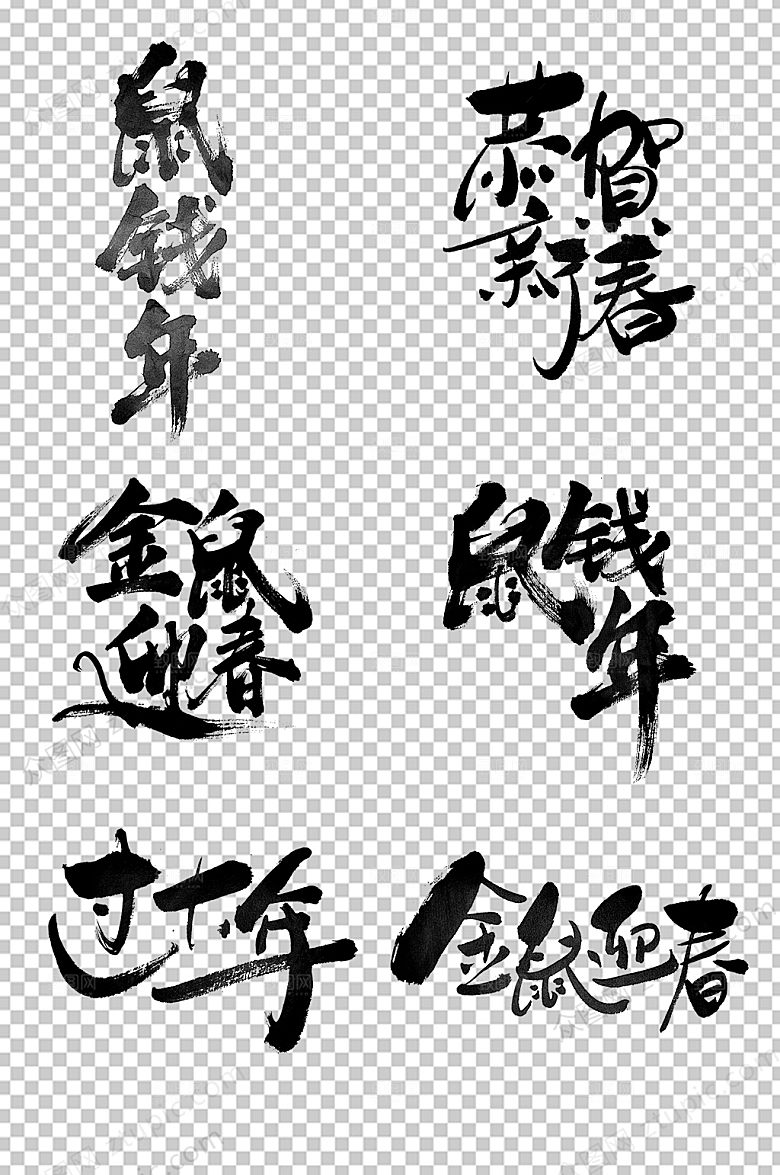 鼠
钱
年
恭贺
新春
金鼠
迎春
鼠钱
年
过年
金鼠迎春
众图网 ztupic.com